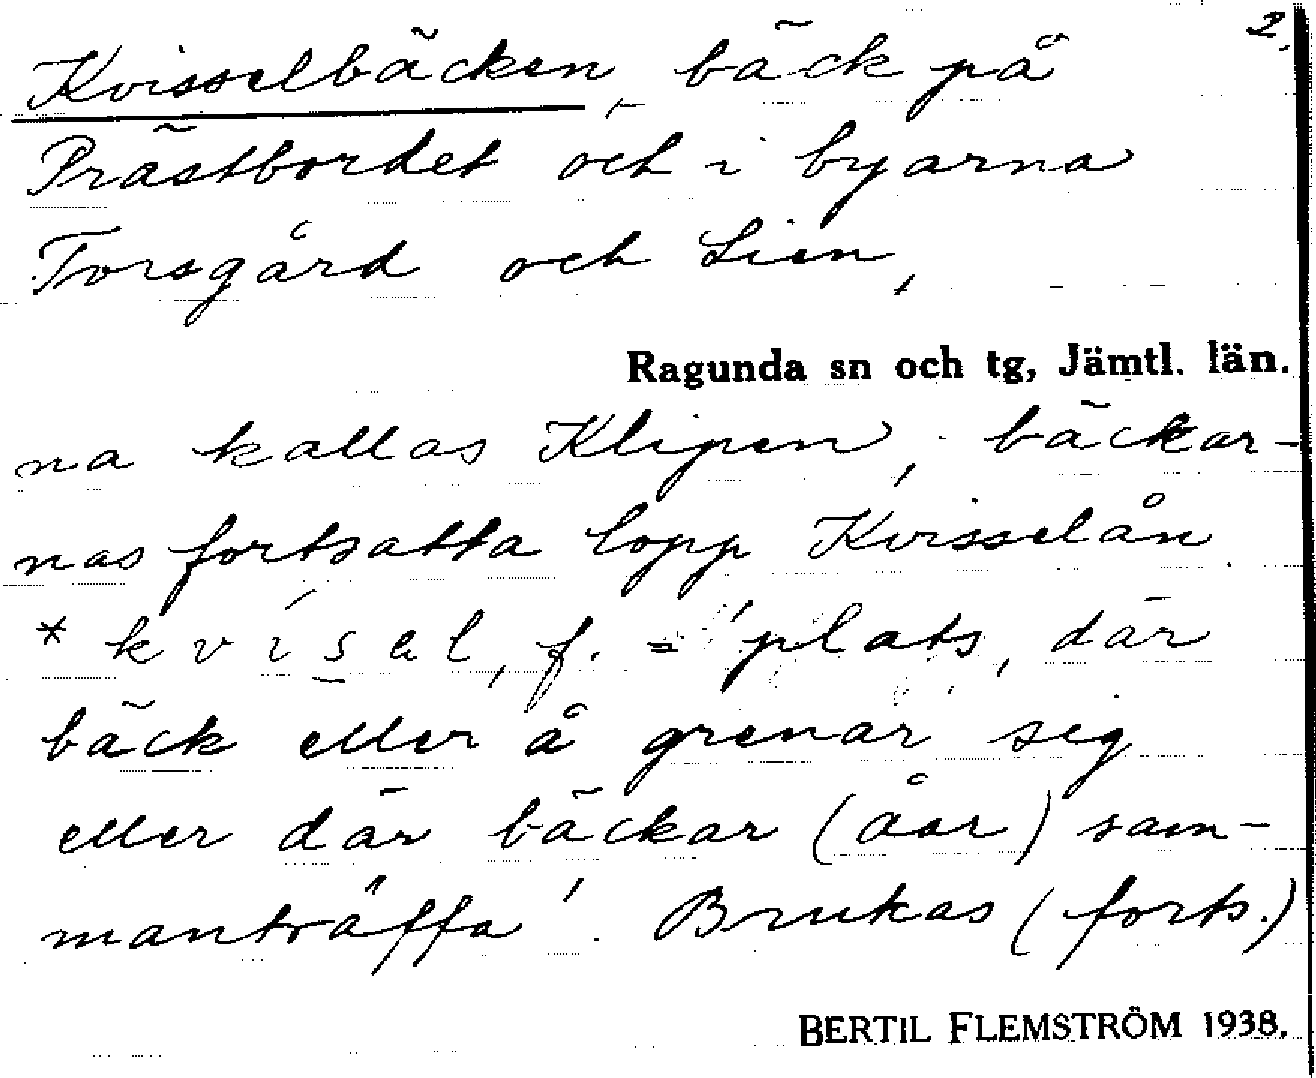 2.
Kvisselbäcken, bäck på
Prästbordet och i byarna
Torsgård och Lien,
Ragunda sn och tg, Jämtl. län.
na kallas Klipen, bäckar-
nas fortsatta lopp Kvisselån
* kvísel, f. = 'plats, där
bäck eller å grenar sig
eller där bäckar (åar) sam-
manträffa'. Brukas (forts.)
BERTIL FLEMSTRÖM 1938.